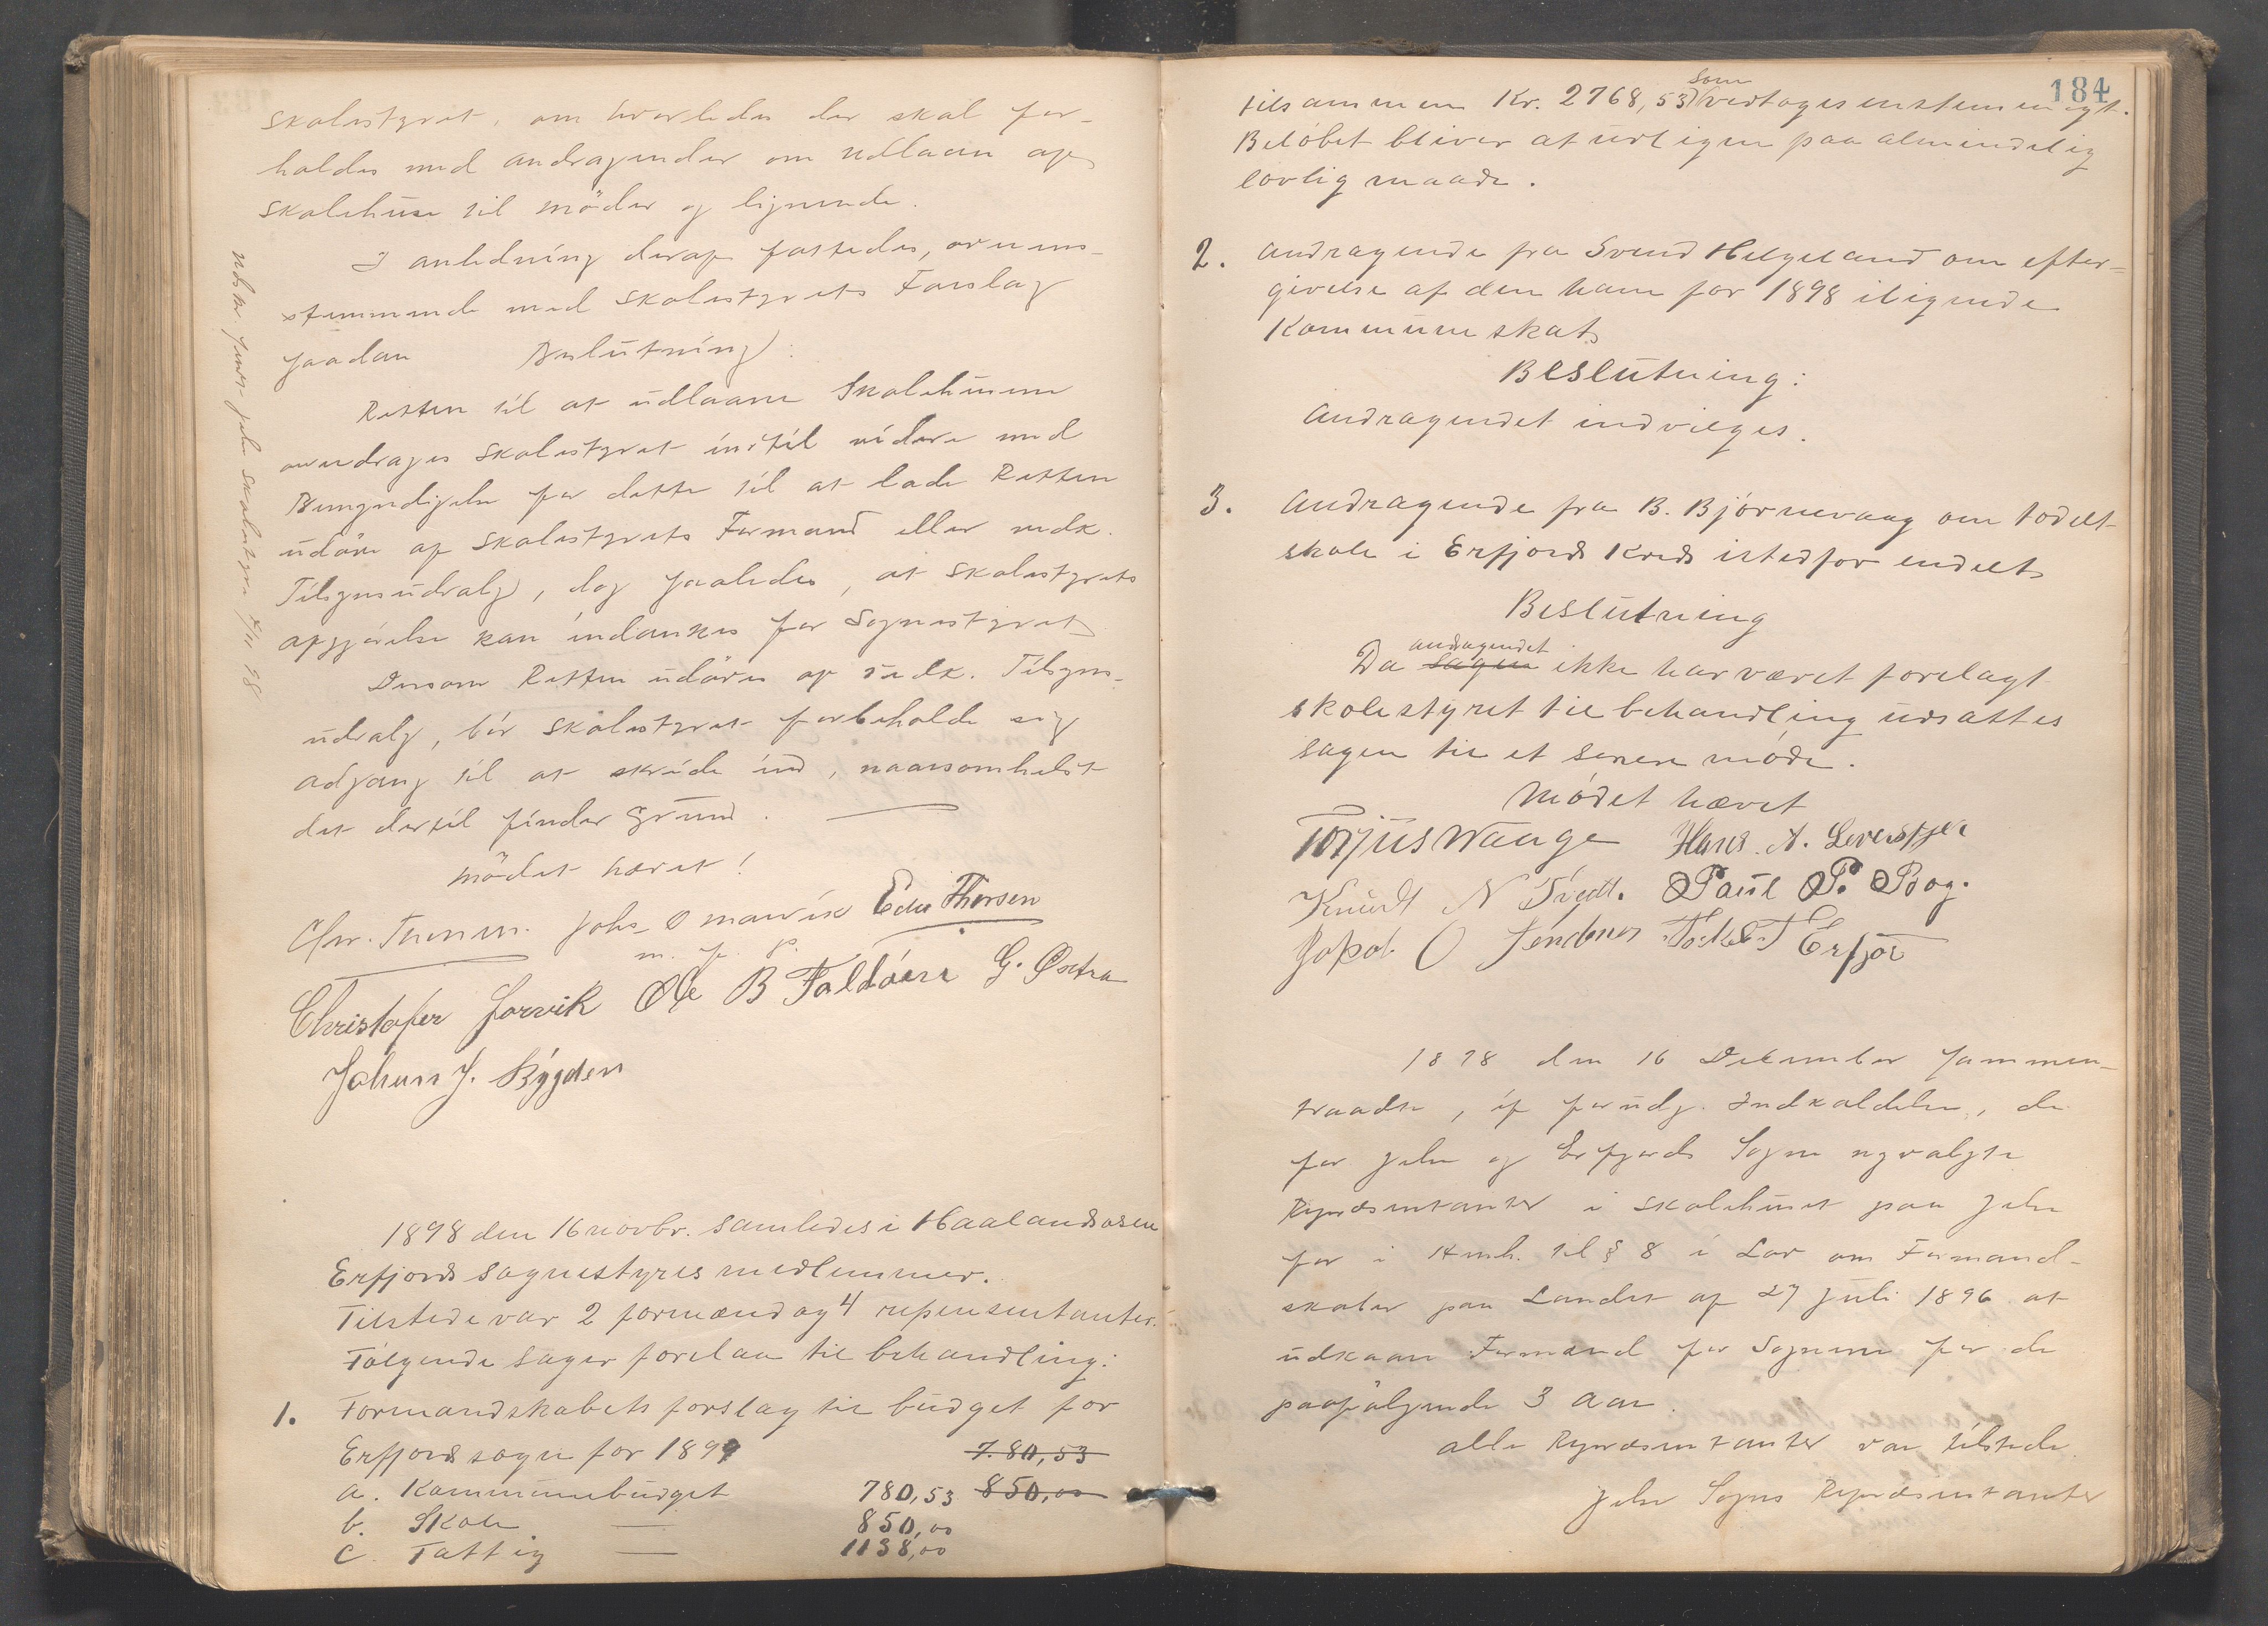 Skolestyret, om hvorledes der skal for-
holdes med Andragender om Udlaan af
Skolehuse til möder og lignende.
I anledning deraf fattedes, overens-
stemmende med Skolestyrets Forslag
saadan Beslutning:
Retten til at udlaane Skolehusene
overdrages Skolestyret indtil videre med
Bemyndigelse for dette til at lade Retten
udöve af Skolestyrets Formand eller vedk.
Tilsynsudvalg, dog saaledes, at Skolestyrets
afgjörelse kan indankes for Sognestyret
Dersom Retten udöves af vedk. Tilsyns-
udvalg, bör Skolestyret forbeholde sig
adgang til at skride ind, naarsomhelst
det dertil finder Grund.
mödet hævet!
Johs. O Marvik Edv Thorsen
m. f. P.
Christofer Jorvik Ole B Foldöen G. Østra
Johan J. Bygden
Jelse Skolestyre 98
1898 den 16 novbr. samledes i Haalandsosen
Erfjords sognestyres medlemmer.
Tilstede var 2 formænd og 4 repensentanter.
Følgende sager forelaa til behandling:
1. Formandskabets forslag til budget for
Erfjord sogn for 1899 7.80,53
a. Kommunebudget 780,53 850,00
b. Skole — 850,00
c. Fattig — 1138,00
184
tilsammen Kr. 2768,53 som vedtoges enstemmigt.
Beløbet bliver at udligne paa almindelig
lovlig maade.
2. Andragende fra Svend Helgeland om efter-
givelse af den ham for 1898 ilignede
Kommuneskat
Beslutning:
Andragendet indvilges.
3. Andragende fra B. Bjørnevaag om todelt
skole i Erfjords Kreds istedfor endelt
Beslutning
andragendet
Da sagen ikke har været forelagt
skolestyret til behandling udsattes
sagen til et senere møde.
Mødet hævet
Torjus Waage Hans A.
Knudt N Tvedt. Paul P. Bog.
Jakob O Erfjor
1898 den 16 December sammen-
traadte, if forudg. Indkaldelse, de
for Jelse og Erfjords Sogne nyvalgte
Repræsentanter i Skolehuset paa Jelse
for i Henh. til § 8 i Lov om Formand-
skaber paa Landet af 27 Juli 1896 at
udkaare Formænd for Sognene for de
paafölgende 3 Aar.
Alle Repræsentanter var tilstede.
Jelse Sogns Repræsentanter